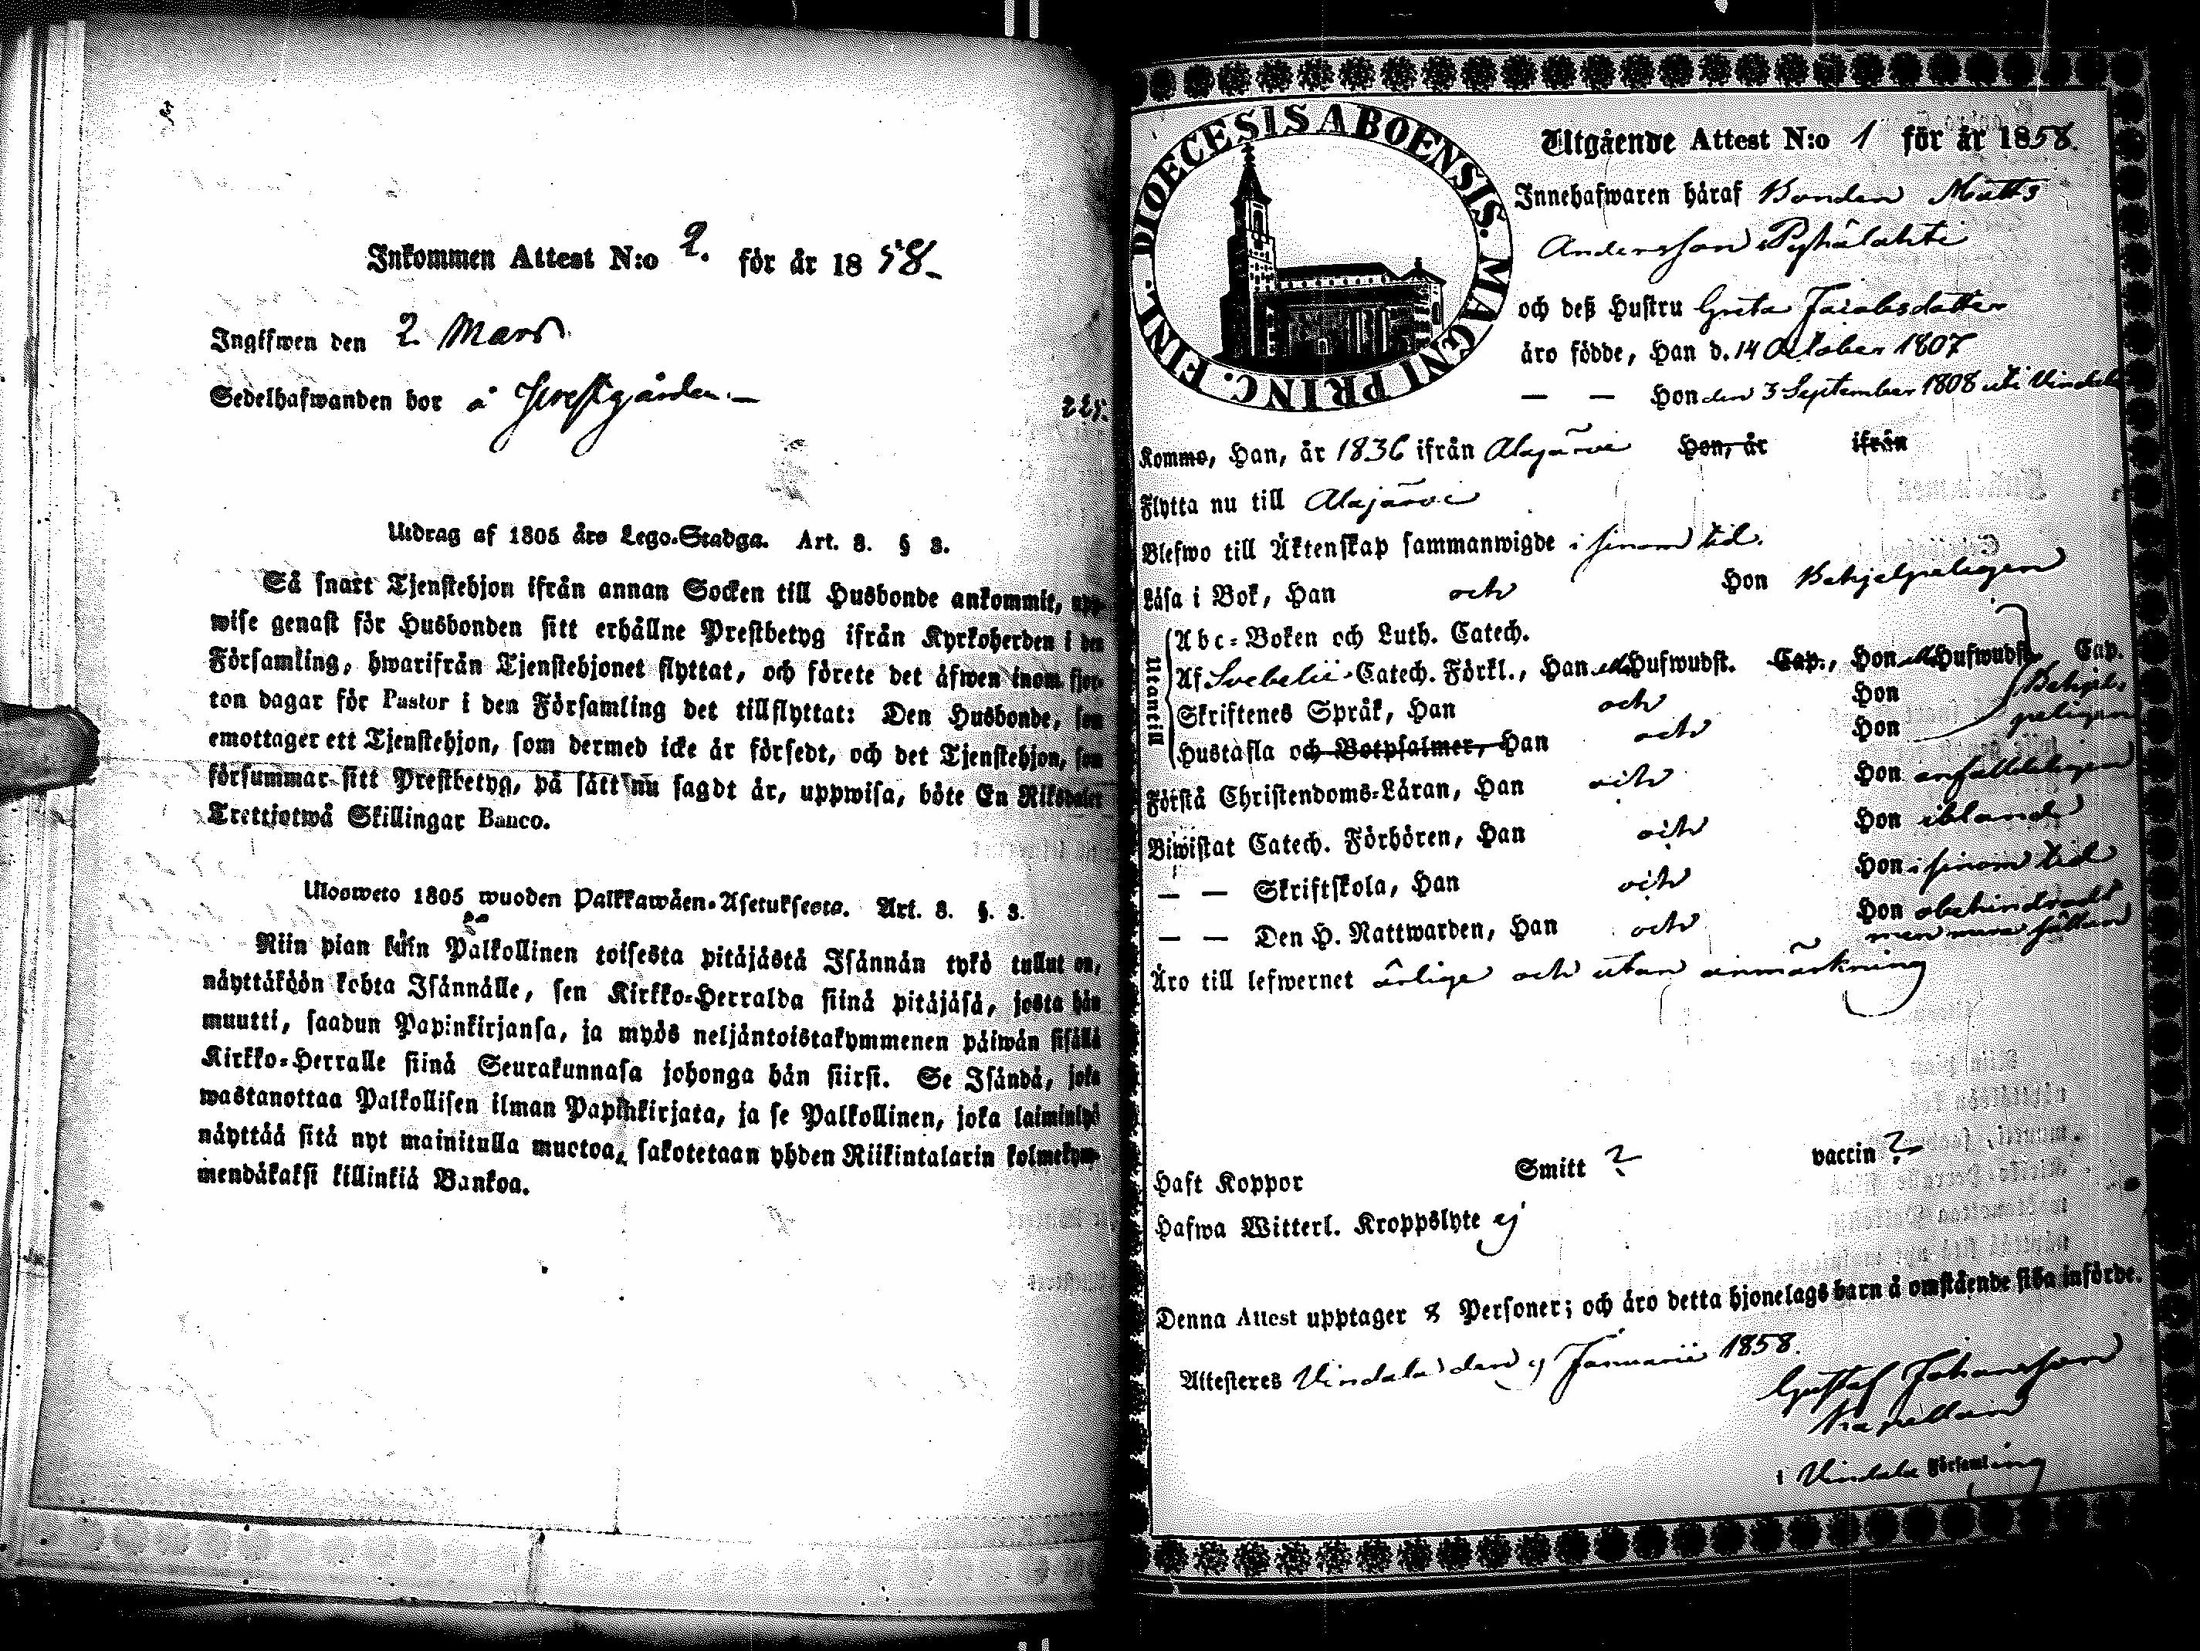 Inkommen Attest N:o 2. för år 1858.
Ingifwen den 2 Mars
Sedelhafwanden bor å
225.
Utdrag af 1805 års Lego-Stadga. Art. 8. § 3.
Så snart Tjenstehjon ifrån annan Socken till Husbonde ankommit, upp-
wise genast för Husbonden sitt erhållne Prestbetyg ifrån Kyrkoherden i den
Församling, hwarifrån Tjenstehjonet flyttat, och förete det äfwen inom fjor-
ton dagar för Pastor i den Församling det tillflyttat: Den Husbonde, som
emottager ett Tjenstehjon, som dermed icke är försedt, och det Tjenstehjon, som
försummar sitt Prestbetyg, på sätt nu sagdt är, uppwisa, böte En Riksdaler
Trettiotwå Skillingar Banco.
Ulosweto 1805 wuoden Palkkawäen-Asetuksesta. Art. 8. §. 3.
Niin pian kuin Palkollinen toisesta pitäjästä Isännän tykö tullut on,
näyttäköön kohta Isännälle, sen Kirkko-Herralda siinä pitäjäsä, josta hän
muutti, saadun Papinkirjansa, ja myös neljäntoistakymmenen päiwän sisällä
Kirkko-Herralle siinä Seurakunnasa johonga hän siirsi. Se Isändä, joka
wastanottaa Palkollisen ilman Papinkirjata, ja se Palkollinen, joka laiminlyö
näyttää sitä nyt mainitulla muotoa, sakotetaan yhden Riikintalarin kolmekym-
mendäkaksi killinkiä Bankoa.
DIOECESIS ABOENSIS. MAGNI PRINC. FINL.
Utgående Attest N:o 1 för år 1858.
Innehafwaren häraf Bonden Matts
Andersson Pyhälahti
och deß Hustru Greta Jacobsdotter
äro födde, Han d. 14 October 1807
— — Hon den 3 September 1808 uti Vindala
Komme, Han, år 1836 ifrån Alajärvi Hon, år ifrån
Flytta nu till Alajärvi
Blefwo till Äktenskap sammanwigde i sinom tid.
Läsa i Bok, Han och Hon Behjelpeligen
Utantill
Abc-Boken och Luth. Catech.
Af Svebelii Catech. Förkl., Han Hufwudst. Cap., Hon Hufwudst. Cap.
Skriftenes Språk, Han och Hon Behjel-
Hustafla och Botpsalmer, Han och Hon peligen
Förstå Christendoms-Läran, Han och Hon
Biwistat Catech. Förhören, Han och Hon ibland
— — Skriftskola, Han och Hon i sinom tid
— — Den H. Nattwarden, Han och Hon obehindradt
men
Äro till lefwernet ärlige och utan anmärkning
Haft Koppor Smitt ? vaccin ?
Hafwa Witterl. Kroppslyte ej
Denna Attest upptager 8 Personer; och äro detta hjonelags barn å omstående sida införde.
Attesteres Vindala den 9 Januarii 1858.
Gustaf Johansson
Kapellan
i Vindala Församling